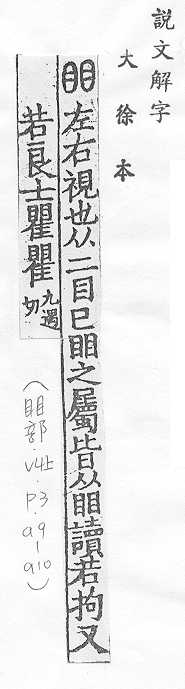 說文解字
大徐本
䀠 左右視也从二目凡䀠之屬皆从䀠讀若拘又
若良士瞿瞿 九遇切
(䀠部.v4上.P.3.a9-a10)